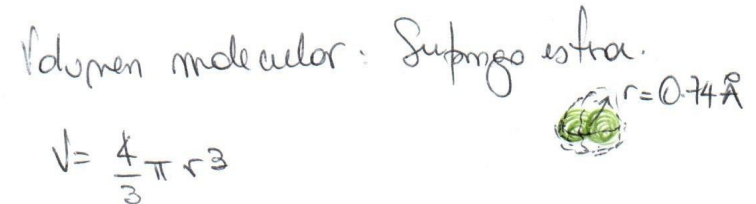 Volumen molecular: Supongo esfera.
r=0.74Å
V= 4/3 π r3